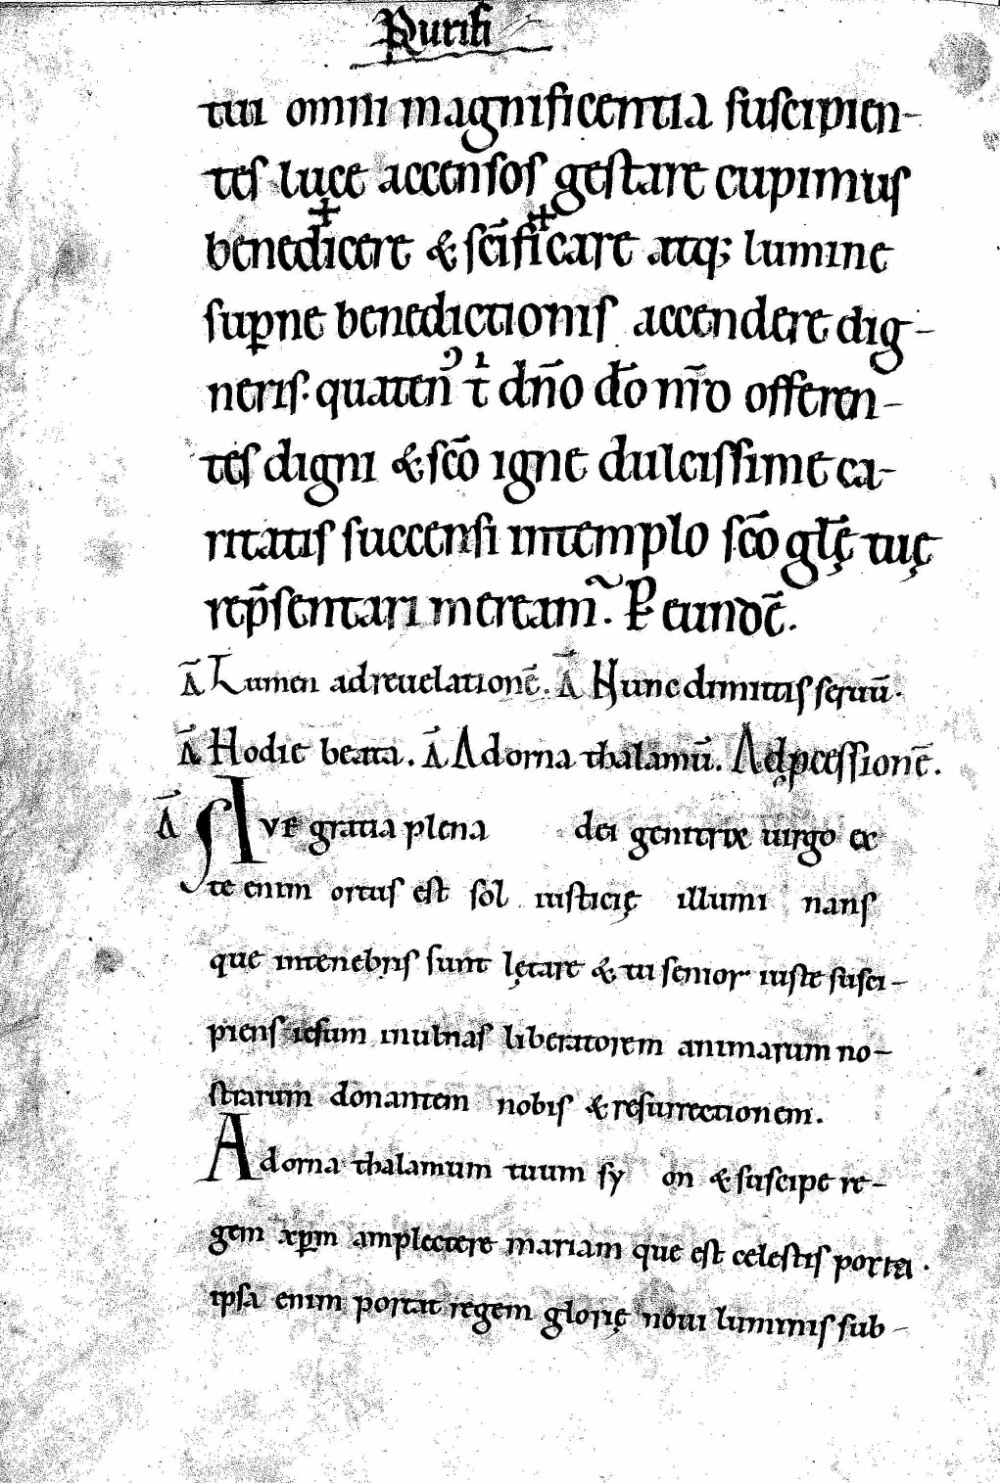 Purifi
tui omni magnificentia suscipien-
tes luce accensos gestare cupimus
benedicere & scīficare atq; lumine
suꝑne benedictionis accendere dig-
neris. quatenꝰ tⁱ dn̄o dō nr̄o offeren-
tes digni & scō igne dulcissime ca-
ritatis succensi intemplo scō gl̄ę tuę
rep̄sentari meream̃. P eundē.
A̅ Lumen adreuelationē. A̅ Nunc dimittis seruū.
A̅ Hodie beata. A̅ Adorna thalamū. Adꝓcessionē.
A̅ AVE gratia plena dei genitrix uirgo ex
te enim ortus est sol iusticię illumi nans
que intenebris sunt lętare & tu senior iuste susci-
piens iesum inulnas liberatorem animarum no-
strarum donantem nobis & resurrectionem.
Adorna thalamum tuum sy on & suscipe re-
gem xp̄m amplectere mariam que est celestis porta.
ipsa enim portat regem glorię noui luminis sub-